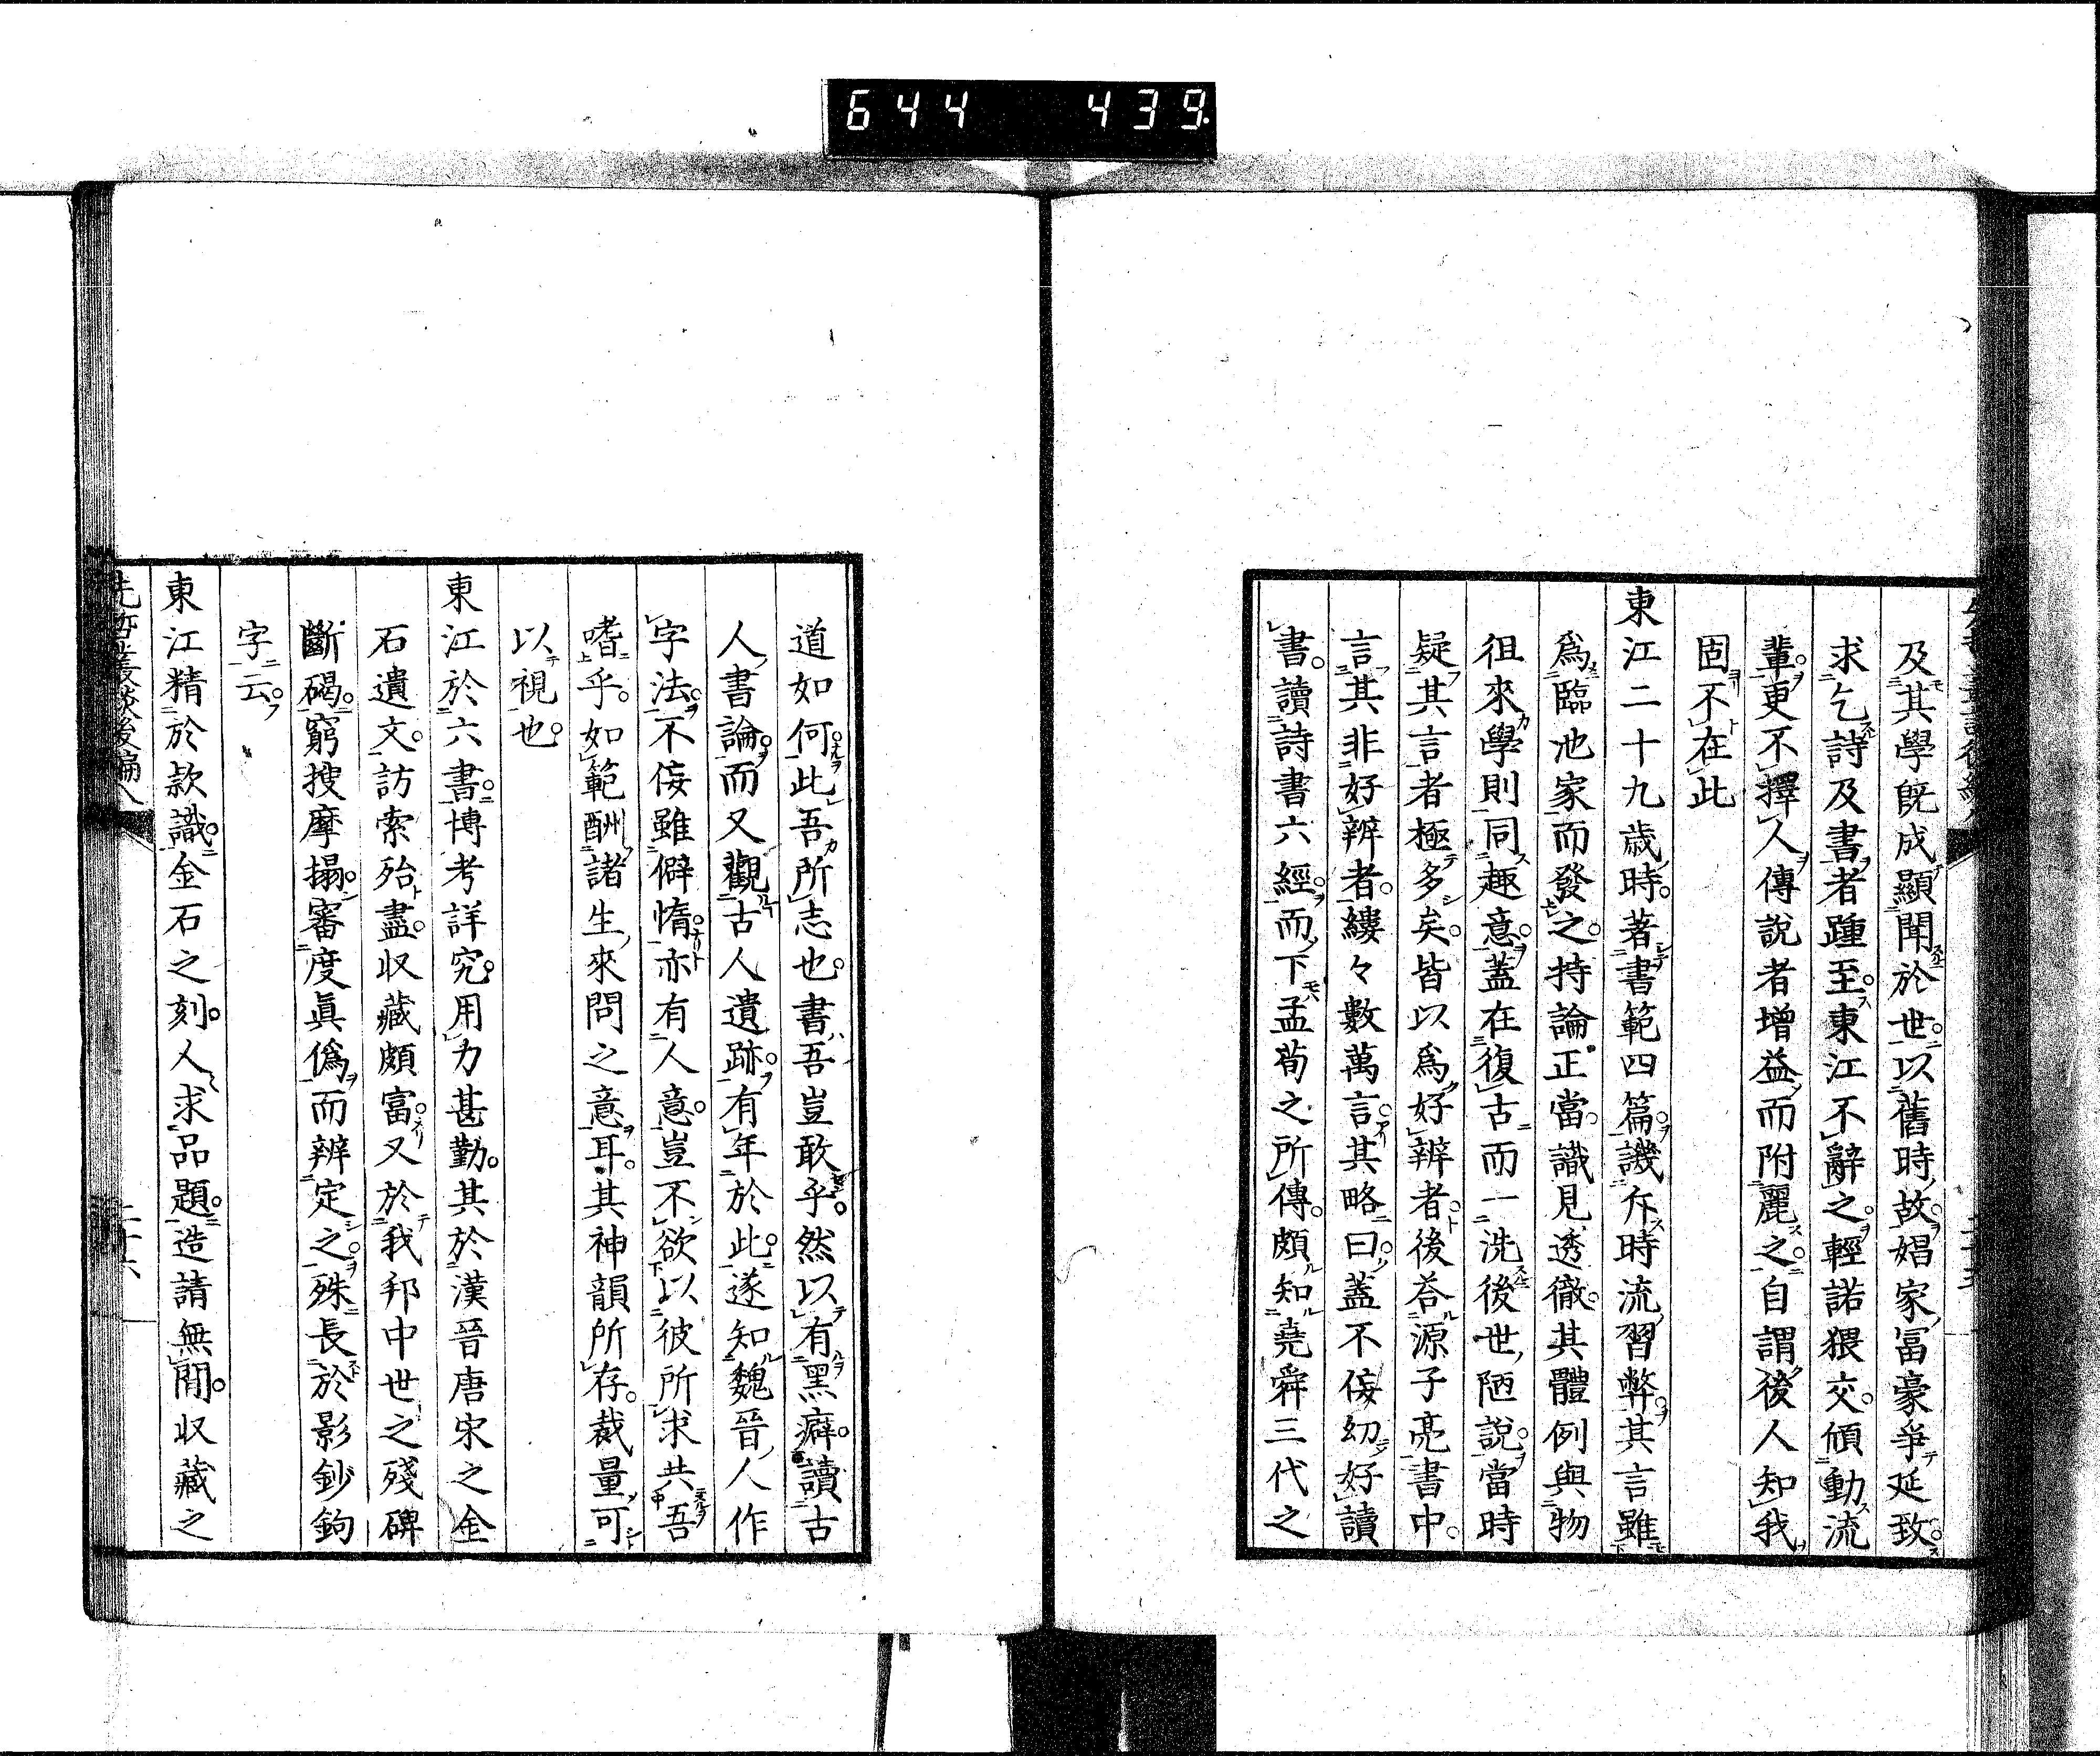 644 439
及其學旣成顯聞於世。以舊時故。娼家冨豪爭延致。
求乞詩及書者踵至。東江不辭之。輕諾猥交。傾動流
輩。更不擇人傳說者增益而附麗之。自謂後人知我
固不在此
東江二十九歲時。著書範四篇。譏斥時流習弊。其言雖
爲臨池家而發之。持論正當。識見透徹。其體例與物
徂來學則同趣意。蓋在復古而一洗後世陋說。當時
疑其言者極多矣。皆以爲好辨者。後荅源子亮書中。
言其非好辨者。縷々數萬言。其略曰。蓋不佞幼好讀
書。讀詩書六經。而下孟荀之所傳。頗知堯舜三代之
道如何。此吾所志也。書吾豈敢乎。然以有黑癖。讀古
人書論。而又觀古人遺跡。有年於此。遂知魏晉人作
字法。不佞雖僻惰。亦有人意。豈不欲以彼所求共吾
嗜乎。如範酬諸生來問之意耳。其神韻所存。裁量可
以視也。
東江於六書。博考詳究。用力甚勤。其於漢晉唐宋之金
石遺文。訪索殆盡。収藏頗富。又於我邦中世之殘碑
斷碣。窮搜摩搨。審度眞僞而辨定之。殊長於影鈔鉤
字云。
東江精於款識。金石之刻。人求品題。造請無閒。収藏之
先哲叢談後編八
二十六